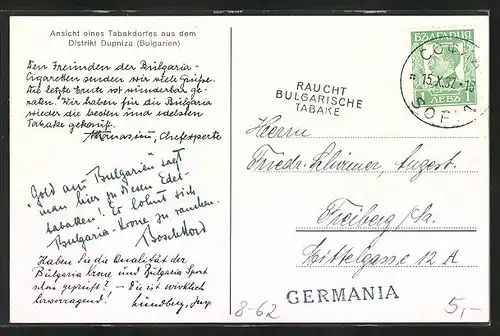 Ansicht eines Tabakdorfes aus dem
Distrikt Dupniza (Bulgarien)
Den Freunden der Bulgaria-
Cigaretten senden wir viele Grüsse.
Die letzte Ernte ist wunderbar ge-
raten. Wir haben für die Bulgaria
wieder die besten und edelsten
Tabake gekauft.
Athanasiu, Chefexperte
"Gold aus Bulgarien" sagt
man hier zu diesen Edel-
tabaken! Es lohnt sich
Bulgaria-Krone zu rauchen.
Haben Sie die Qualität der
Bulgaria Krone und Bulgaria Sport
schon geprüft? – die ist wirklich
hervorragend!
8-62
RAUCHT
BULGARISCHE
TABAKE
БЪЛГАРИЯ
ЛЕВЪ
СОФИЯ
15.X.37.-16
SOFIA
Herrn
Friedr. Schirmer, Angest.
Freiberg i/Sa.
Mittelgasse 12 A
GERMANIA
5,-